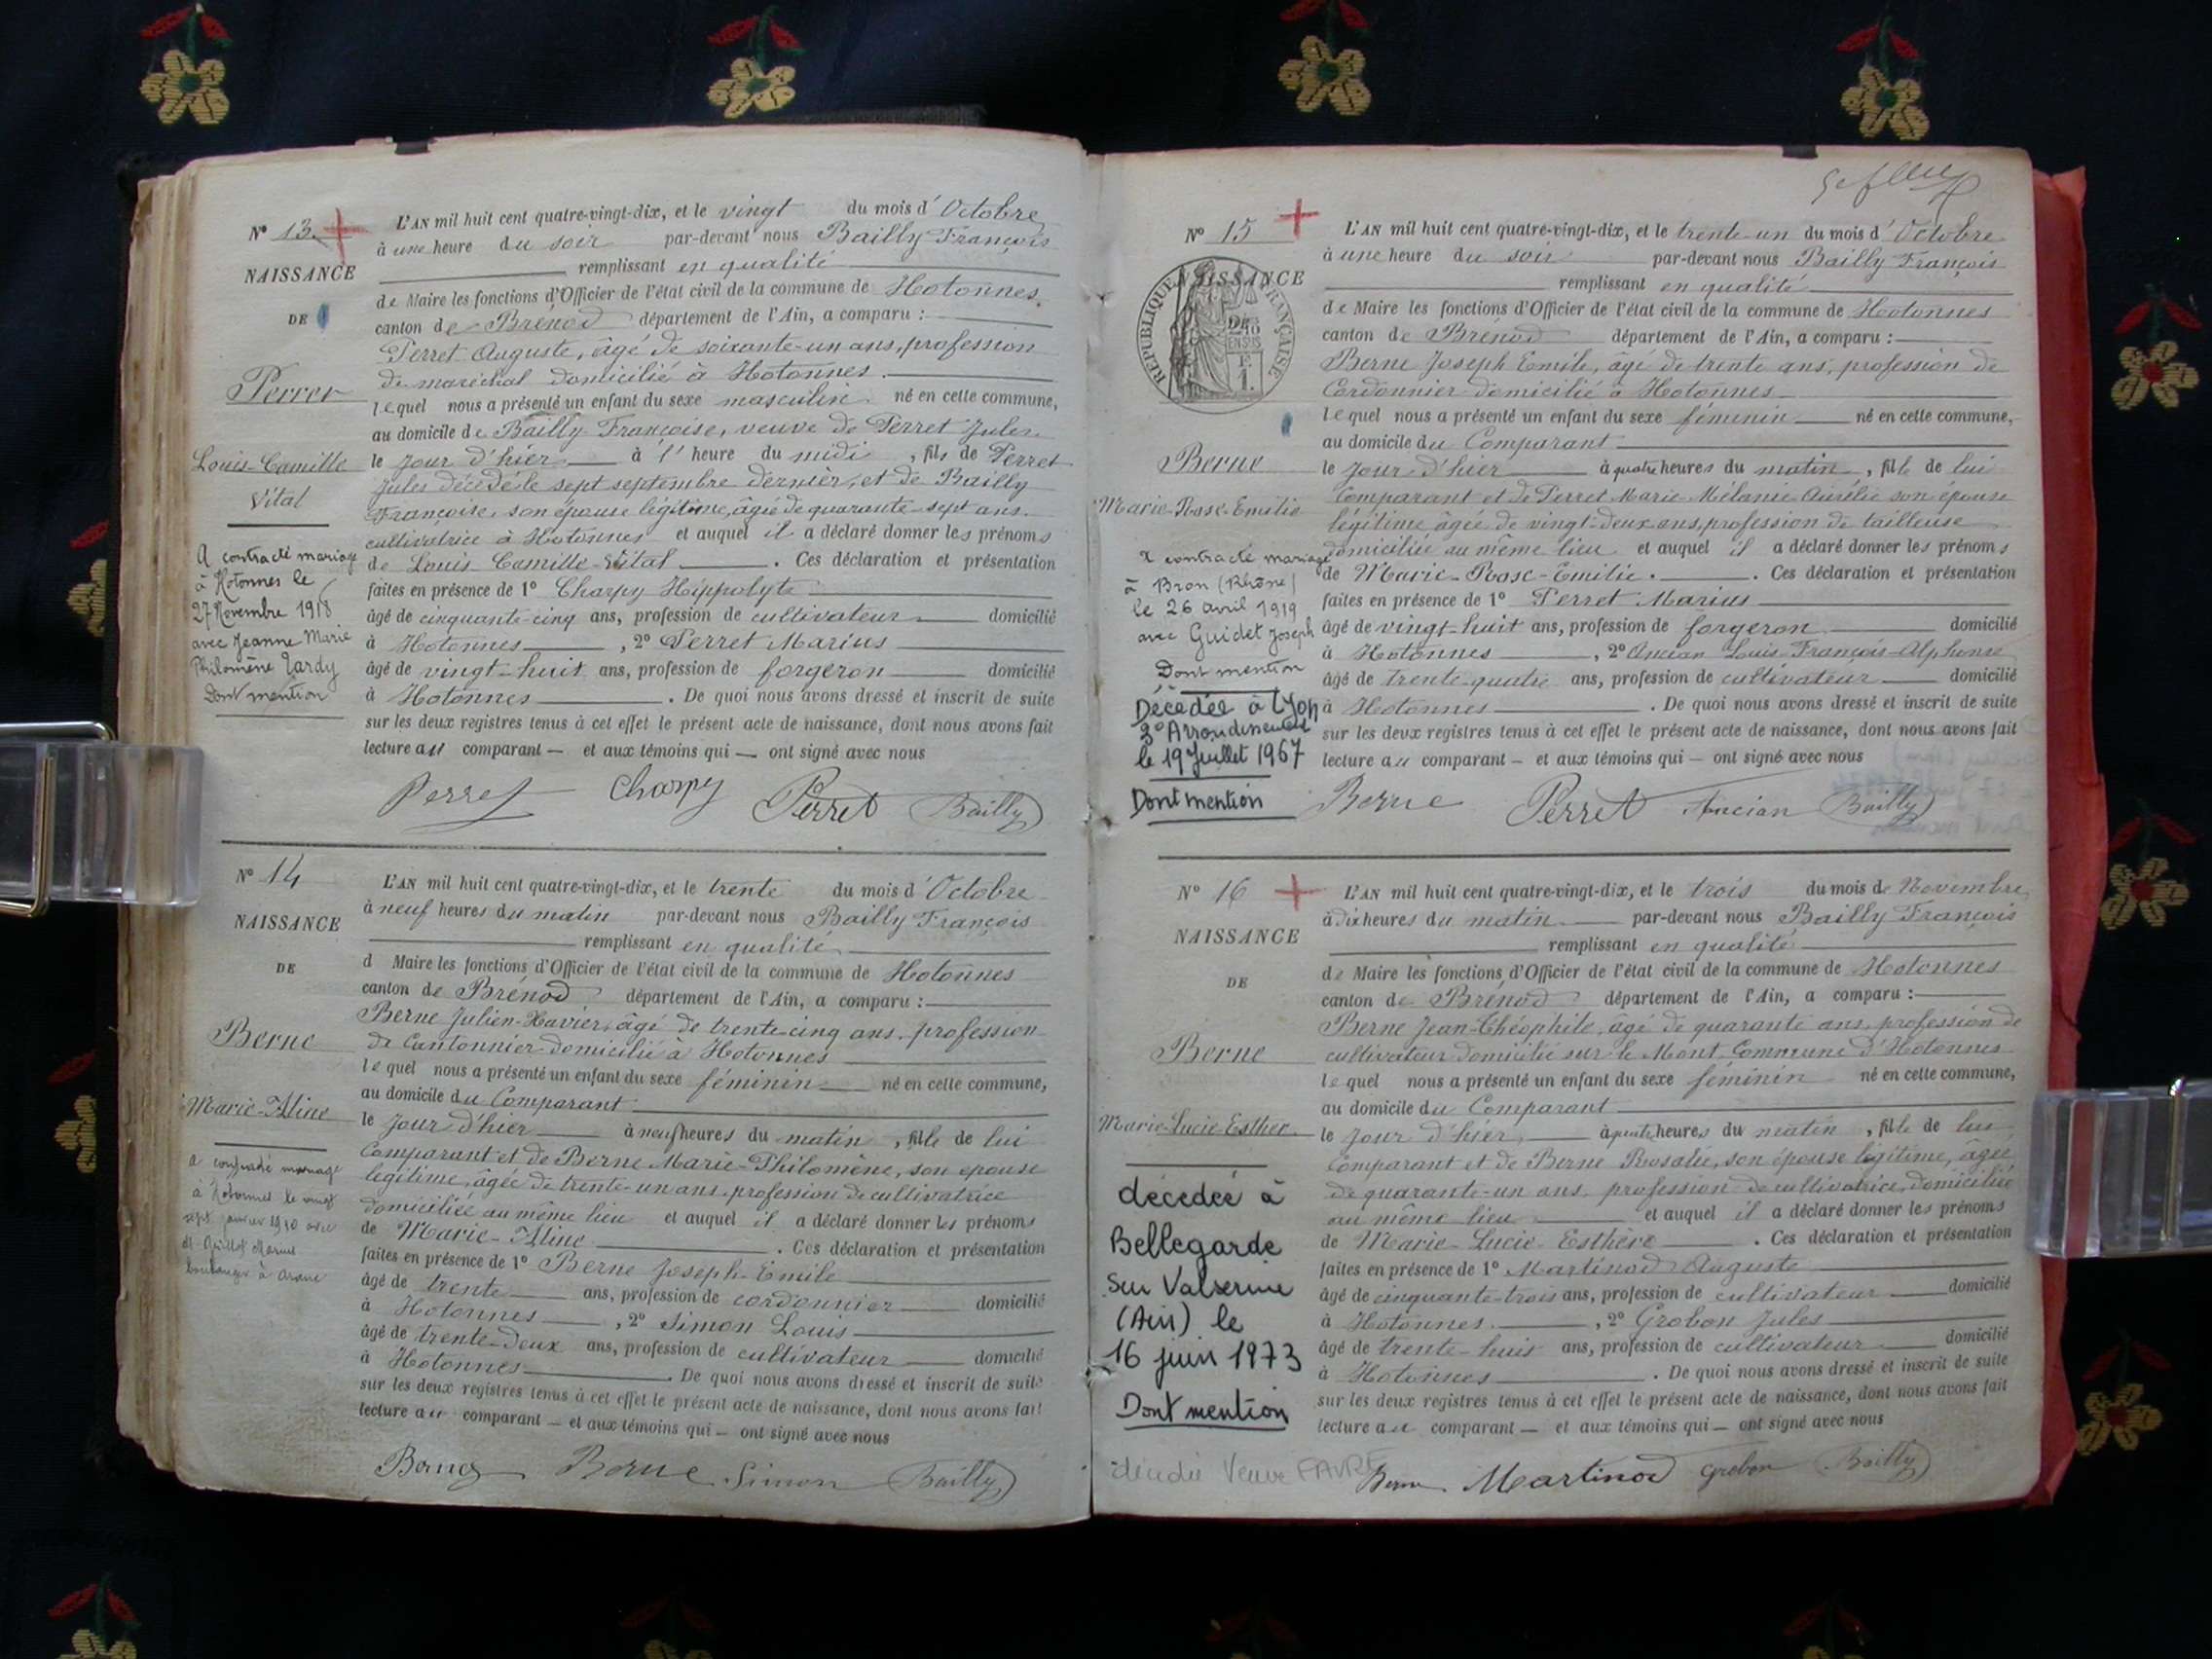 N° 13.
NAISSANCE
DE
Perret
Louis-Camille
Vital
A contracté mariage
à Hotonnes le
27 Novembre 1918
avec Jeanne Marie
Philomène Tardy
Dont mention
L'AN mil huit cent quatre-vingt-dix, et le vingt du mois d'Octobre
à une heure du soir par-devant nous Bailly François
remplissant en qualité
de Maire les fonctions d'Officier de l'état civil de la commune de Hotonnes.
canton de Brénod département de l'Ain, a comparu :
Perret Auguste, âgé de soixante-un ans, profession
de maréchal domicilié à Hotonnes.
lequel nous a présenté un enfant du sexe masculin né en cette commune,
au domicile de Bailly Françoise, veuve de Perret Jules
le jour d'hier à l' heure du midi , fils de Perret
Jules décédé le sept septembre dernier, et de Bailly
Françoise, son épouse légitime, âgée de quarante-sept ans.
cultivatrice à Hotonnes et auquel il a déclaré donner les prénoms
de Louis Camille-Vital . Ces déclaration et présentation
faites en présence de 1° Charpy Hippolyte
âgé de cinquante-cinq ans, profession de cultivateur domicilié
à Hotonnes , 2° Perret Marius
âgé de vingt-huit ans, profession de forgeron domicilié
à Hotonnes . De quoi nous avons dressé et inscrit de suite
sur les deux registres tenus à cet effet le présent acte de naissance, dont nous avons fait
lecture au comparant — et aux témoins qui — ont signé avec nous
Perret Charpy Perret Bailly
N° 14
NAISSANCE
DE
Berne
Marie-Aline
a contracté mariage
à Hotonnes le vingt
sept janvier 1910 avec
boulanger à
L'AN mil huit cent quatre-vingt-dix, et le trente du mois d'Octobre
à neuf heures du matin par-devant nous Bailly François
remplissant en qualité
d Maire les fonctions d'Officier de l'état civil de la commune de Hotonnes
canton de Brénod département de l'Ain, a comparu :
Berne Julien-Xavier, âgé de trente-cinq ans, profession
de Cantonnier domicilié à Hotonnes
lequel nous a présenté un enfant du sexe féminin né en cette commune,
au domicile du Comparant
le jour d'hier à neuf heures du matin , fille de lui
Comparant et de Berne Marie-Philomène, son épouse
légitime, âgée de trente-un ans, profession de cultivatrice
domiciliée au même lieu et auquel il a déclaré donner les prénoms
de Marie-Aline . Ces déclaration et présentation
faites en présence de 1° Berne Joseph-Emile
âgé de trente ans, profession de cordonnier domicilié
à Hotonnes , 2° Simon Louis
âgé de trente-deux ans, profession de cultivateur domicilié
à Hotonnes . De quoi nous avons dressé et inscrit de suite
sur les deux registres tenus à cet effet le présent acte de naissance, dont nous avons fait
lecture au comparant — et aux témoins qui — ont signé avec nous
Berne Simon Bailly
N° 15
NAISSANCE
DE
RÉPUBLIQUE FRANÇAISE
Berne
Marie-Rose-Emilie
a contracté mariage
à Bron (Rhône)
le 26 avril 1919
avec Guidet Joseph
Dont mention
Décédée à Lyon
3° Arrondissement
le 19 Juillet 1967
Dont mention
L'AN mil huit cent quatre-vingt-dix, et le trente-un du mois d'Octobre
à une heure du soir par-devant nous Bailly François
remplissant en qualité
de Maire les fonctions d'Officier de l'état civil de la commune de Hotonnes
canton de Brénod département de l'Ain, a comparu :
Berne Joseph Emile, âgé de trente ans, profession de
Cordonnier domicilié à Hotonnes
lequel nous a présenté un enfant du sexe féminin né en cette commune,
au domicile du Comparant
le jour d'hier à quatre heures du matin , fille de lui
Comparant et de Perret Marie-Mélanie Aurélie son épouse
légitime, âgée de vingt-deux ans, profession de tailleuse
domiciliée au même lieu et auquel il a déclaré donner les prénoms
de Marie-Rose-Emilie . Ces déclaration et présentation
faites en présence de 1° Perret Marius
âgé de vingt-huit ans, profession de forgeron domicilié
à Hotonnes , 2° Ancian Louis-François-Alphonse
âgé de trente-quatre ans, profession de cultivateur domicilié
à Hotonnes . De quoi nous avons dressé et inscrit de suite
sur les deux registres tenus à cet effet le présent acte de naissance, dont nous avons fait
lecture au comparant — et aux témoins qui — ont signé avec nous
Berne Perret Ancian Bailly
N° 16
NAISSANCE
DE
Berne
Marie-Lucie-Esther
décédée à
Bellegarde
sur Valserine
(Ain) le
16 juin 1973
Dont mention
décédée Veuve FAVRE
L'AN mil huit cent quatre-vingt-dix, et le trois du mois de Novembre
à dix heures du matin par-devant nous Bailly François
remplissant en qualité
de Maire les fonctions d'Officier de l'état civil de la commune de Hotonnes
canton de Brénod département de l'Ain, a comparu :
Berne Jean-Théophile, âgé de quarante ans, profession de
cultivateur domicilié sur le Mont Commune d'Hotonnes
lequel nous a présenté un enfant du sexe féminin né en cette commune,
au domicile du Comparant
le jour d'hier à quatre heures du matin , fille de lui
Comparant et de Berne Rosalie, son épouse légitime, âgée
de quarante-un ans, profession de cultivatrice, domiciliée
au même lieu et auquel il a déclaré donner les prénoms
de Marie-Lucie-Esthère . Ces déclaration et présentation
faites en présence de 1° Martinod Auguste
âgé de cinquante-trois ans, profession de cultivateur domicilié
à Hotonnes , 2° Grobon Jules
âgé de trente-huit ans, profession de cultivateur domicilié
à Hotonnes . De quoi nous avons dressé et inscrit de suite
sur les deux registres tenus à cet effet le présent acte de naissance, dont nous avons fait
lecture au comparant — et aux témoins qui — ont signé avec nous
Berne Martinod Grobon Bailly